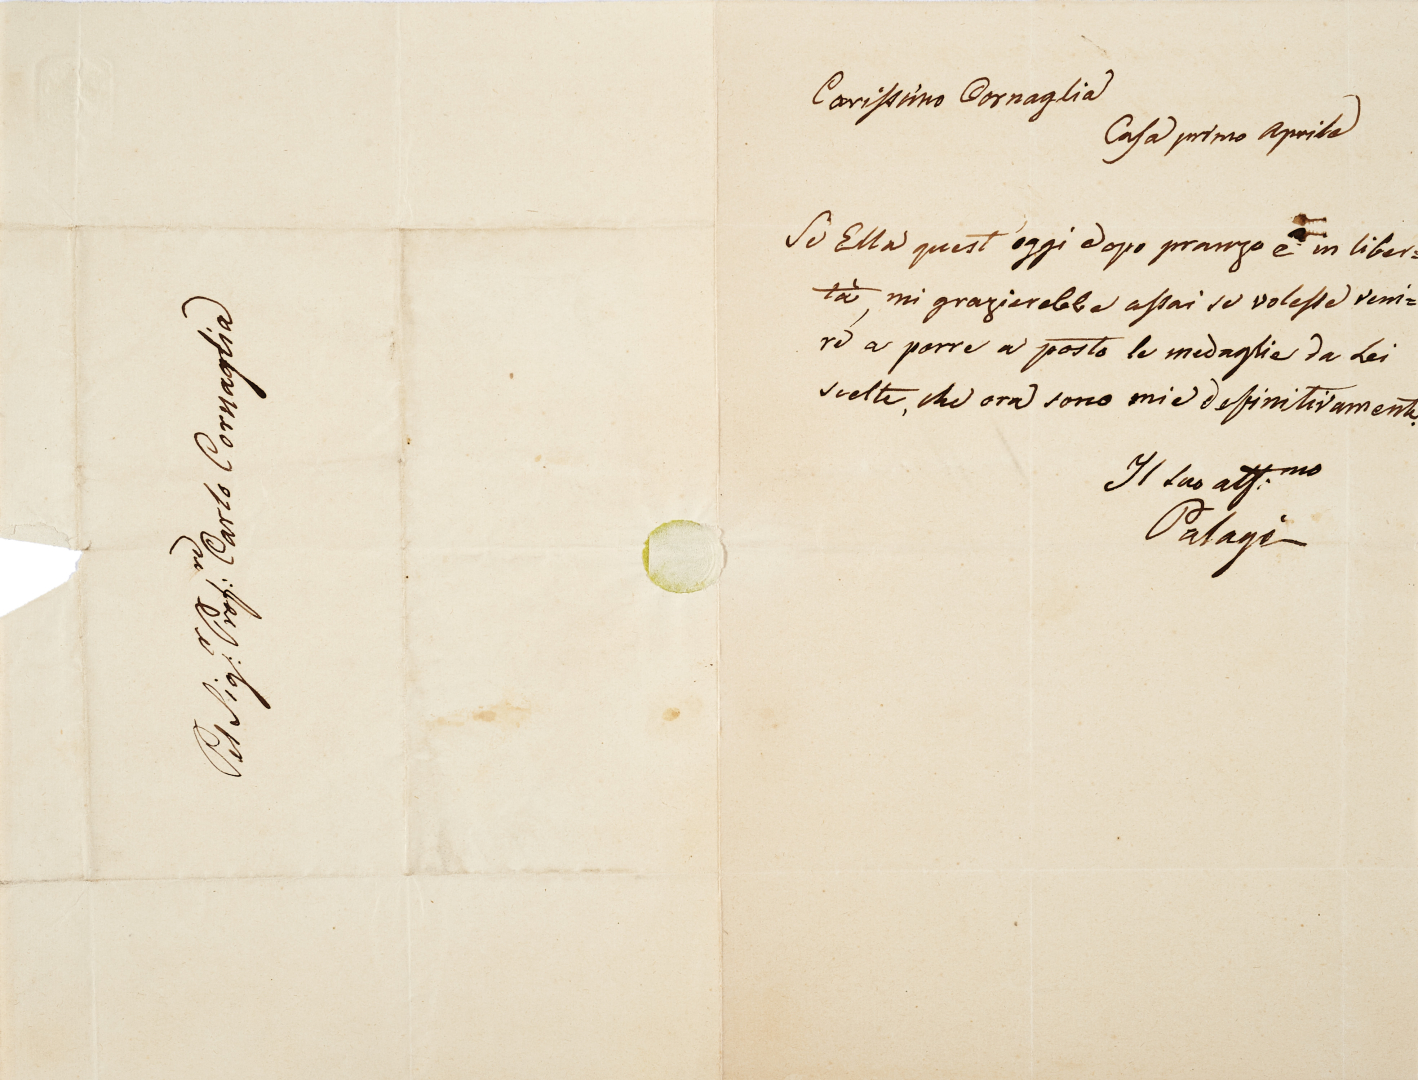 Carissimo Cornaglia
Casa primo Aprile
Se Ella quest'oggi dopo pranzo è in liber=
tà, mi grazierebbe assai se volesse veni=
re a porre a posto le medaglie da Lei
scelte, che ora sono mie definitivamente.
Il suo aff.mo
Palagi
Pel Sig.r Prof.
Carlo Cornaglia